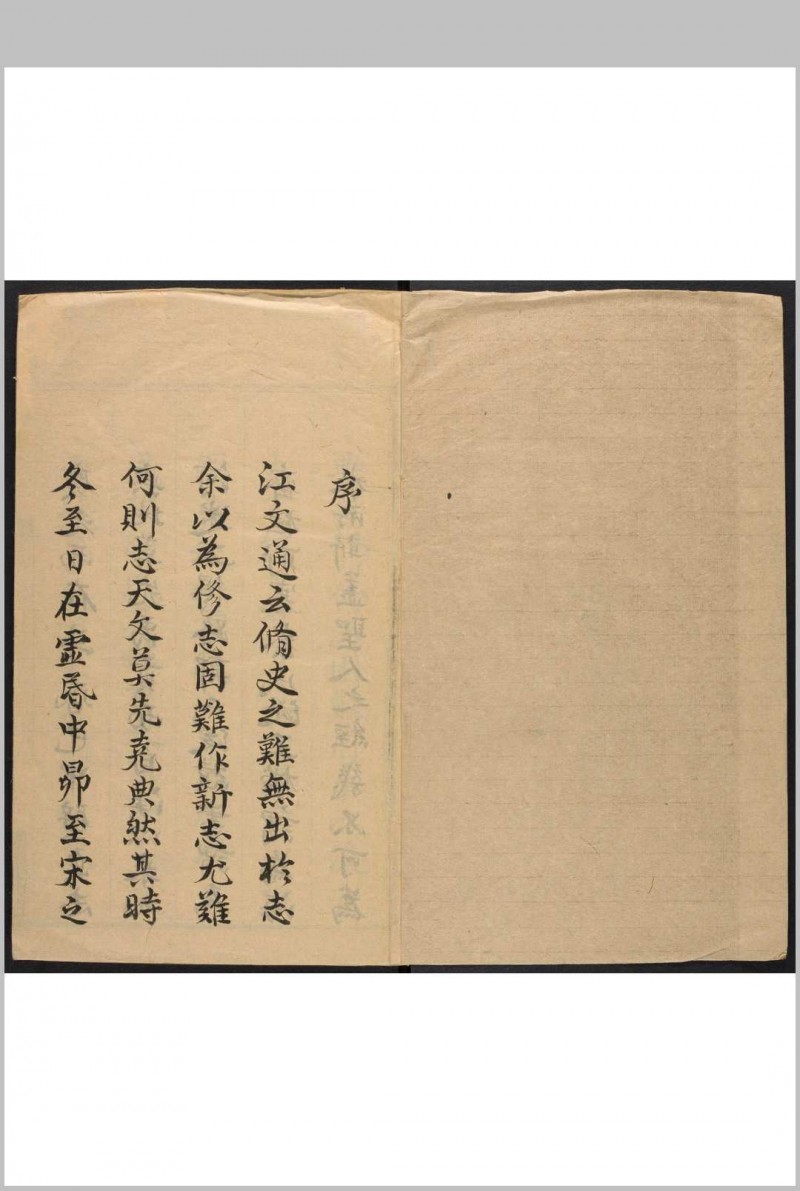 序
江文通云脩史之難無出於志
余以為修志固難作新志尤難
何則志天文莫先堯典然其時
冬至日在虛昏中昴至宋之